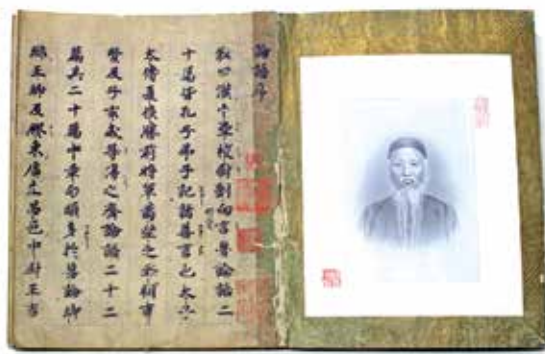 論語序
敘曰漢中壘校尉劉向言魯論語二
十篇皆孔子弟子記諸善言也太子
太傅夏侯勝前將軍蕭望之丞相韋
賢及子玄成等傳之齊論語二十二
篇其二十篇中章句頗多於魯論琅
邪王卿及膠東庸生昌邑中尉王吉